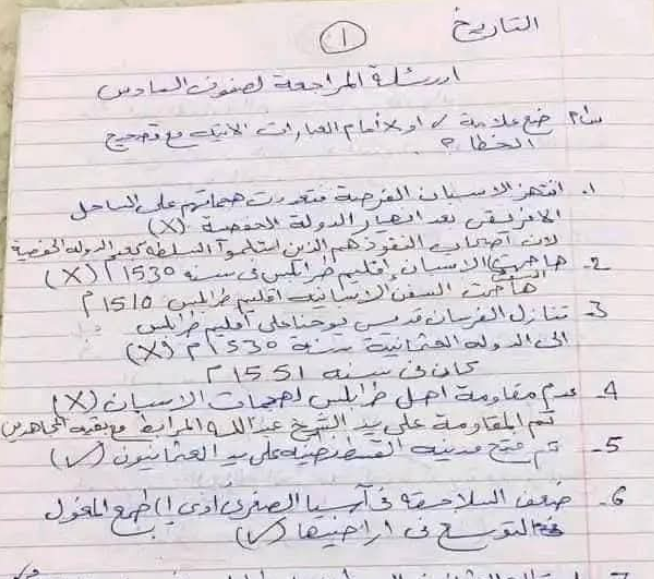 التاريخ
1
اسئلة المراجعة لصفوف السادس
س2 ضع علامة ✓ او x أمام العبارات الاتية مع تصحيح
الخطا؟
1. انتهز الاسبان الفرصة فتعددت هجماتهم على الساحل
الافريقي بعد انهيار الدولة الحفصية (X)
لان اصحاب النفوذ هم الذين استلموا السلطة بعد الدولة الحفصية
2- هاجمت الاسبان إقليم طرابلس في سنه 1530م (X)
هاجمت السفن الاسبانية اقليم طرابلس 1510م
3- تنازل الفرسان قديس يوحنا على أقليم طرابلس
الى الدوله العثمانية سنة 1530م (X)
كان في سنه 1551م
4- عدم مقاومة اهل طرابلس لهجمات الاسبان (X)
تم المقاومة على يد الشيخ عبدالله المرابط مع بقية المجاهدين
5- تم فتح مدينه القسطنطينيه على يد العثمانيون (✓)
6- ضعف السلاجقه في آسيا الصغرى ادى إلى طمع المغول
التوسع في اراضيها (✓)